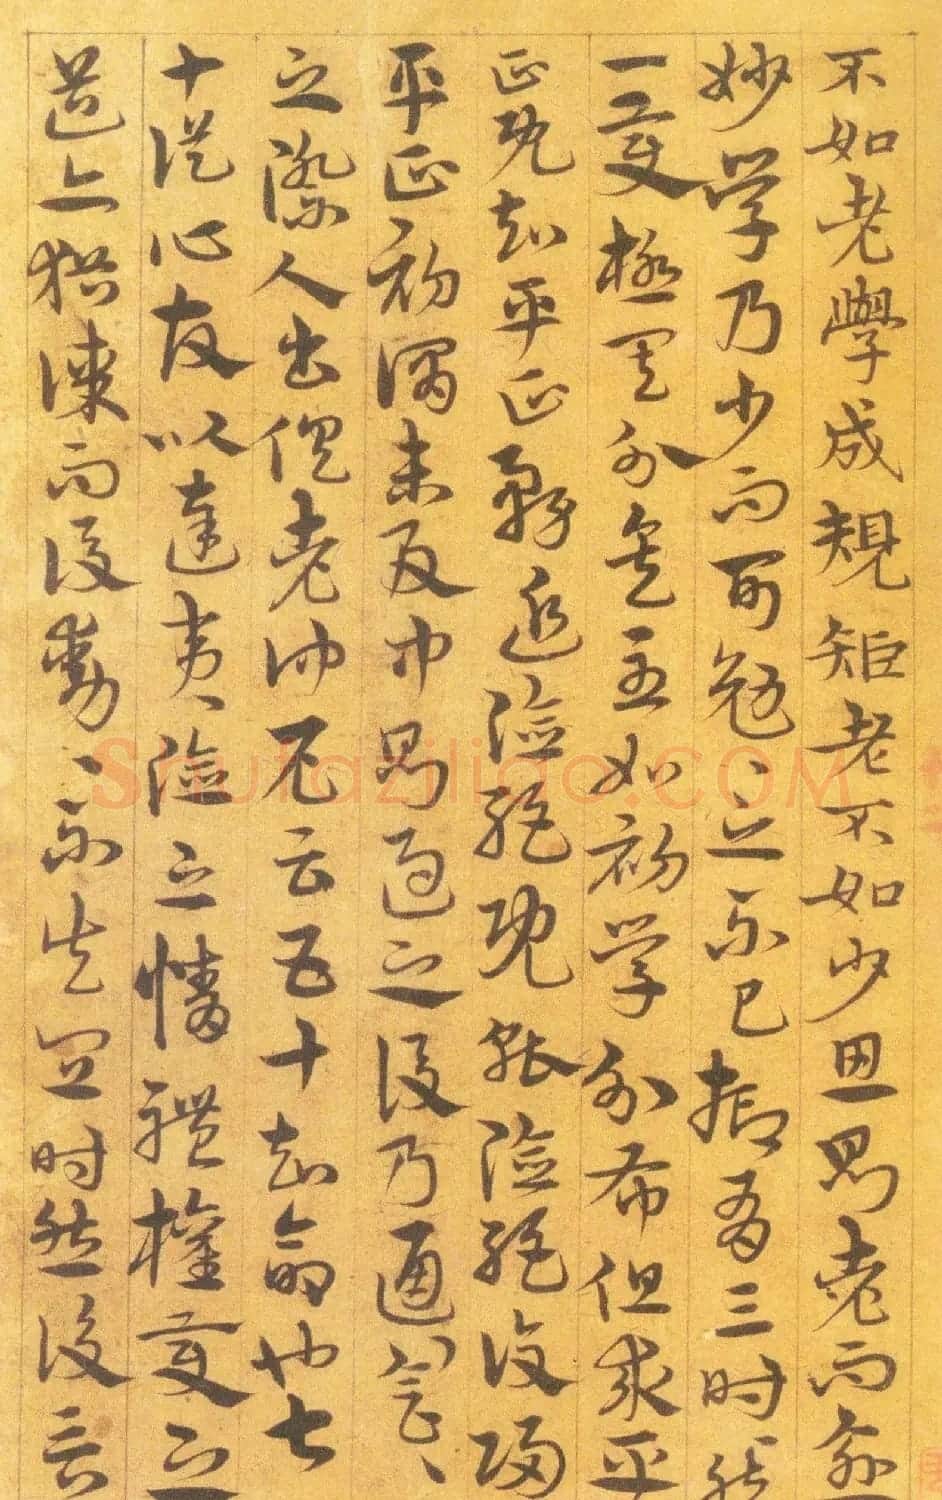 不如老學成規矩老不如少思則老而逾
妙學乃少而可勉〻之不已抑有三時然
一變極其分矣至如初學分布但求平
正既知平正務追險絕既能險絕復歸
平正初謂未及中則過之後乃通會〻
之際人書俱老仲尼云五十知命也七
十從心故以達夷險之情體權變之
道亦猶謀而後動〻不失宜時然後言
Shufaziliao.COM